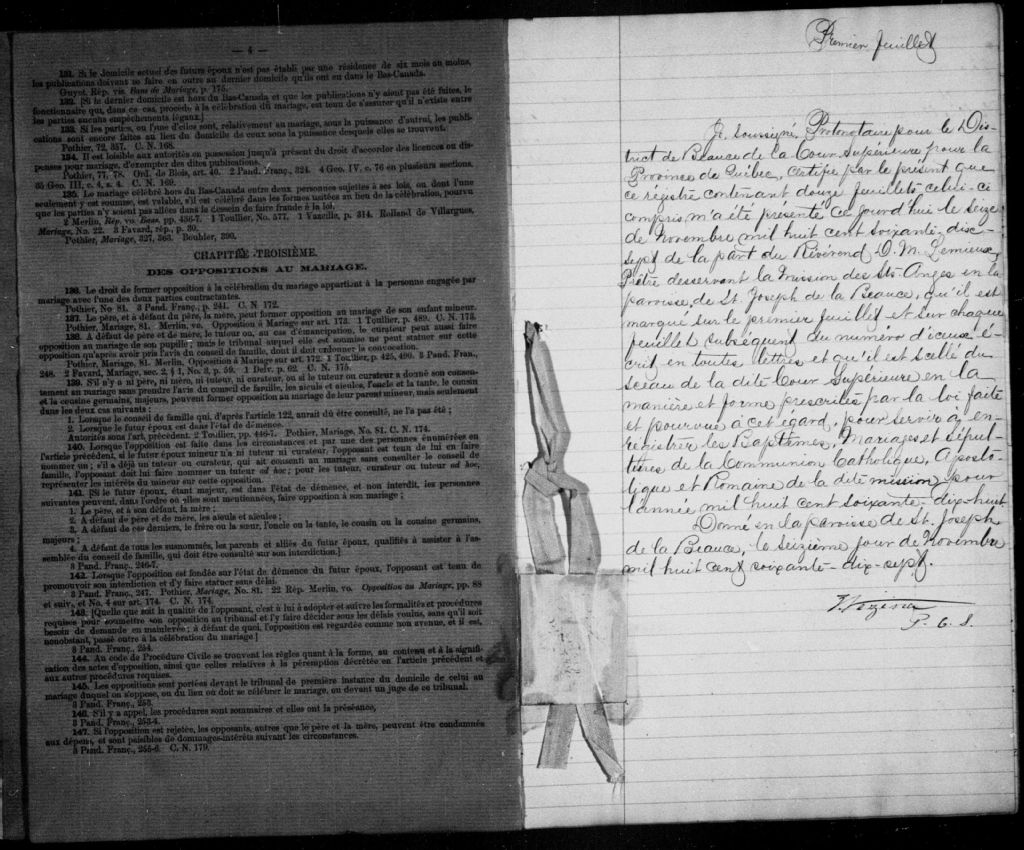 — 4 —
131. Si le domicile actuel des futurs époux n'est pas établi par une résidence de six mois au moins,
les publications doivent se faire en outre au dernier domicile qu'ils ont eu dans le Bas-Canada.
Guyot, Rép. vis. Bans de Mariage, p. 175.
132. [Si le dernier domicile est hors du Bas-Canada et que les publications n'y aient pas été faites, le
fonctionnaire qui, dans ce cas, procède à la célébration du mariage, est tenu de s'assurer qu'il n'existe entre
les parties aucuns empêchements légaux.]
133. Si les parties, ou l'une d'elles sont, relativement au mariage, sous la puissance d'autrui, les publi-
cations sont encore faites au lieu du domicile de ceux sous la puissance desquels elles se trouvent.
Pothier, 72, 357. C. N. 168.
134. Il est loisible aux autorités en possession jusqu'à présent du droit d'accorder des licences ou dis-
penses pour mariage, d'exempter des dites publications.
Pothier, 77, 78. Ord. de Blois, art. 40. 2 Pand. Franç., 324. 4 Geo. IV, c. 76 en plusieurs sections.
35 Geo. III, c. 4, s. 4. C. N. 169.
135. Le mariage célébré hors du Bas-Canada entre deux personnes sujettes à ses lois, ou dont l'une
seulement y est soumise, est valable, s'il est célébré dans les formes usitées au lieu de la célébration, pourvu
que les parties n'y soient pas allées dans le dessein de faire fraude à la loi.
2 Merlin, Rép. vo. Bans, pp. 436-7. 1 Toullier, No. 577. 1 Vazeille, p. 314. Rolland de Villargues,
Mariage, No. 22. 3 Favard, rép., p. 30.
Pothier, Mariage, 327, 363. Bouhier, 390.
CHAPITRE TROISIÈME.
DES OPPOSITIONS AU MARIAGE.
136. Le droit de former opposition à la célébration du mariage appartient à la personne engagée par
mariage avec l'une des deux parties contractantes.
Pothier, No 81. 3 Pand. Franç., p. 241. C. N. 172.
137. Le père, et à défaut du père, la mère, peut former opposition au mariage de son enfant mineur.
Pothier, Mariage, 81. Merlin, vo. Opposition à Mariage sur art. 173. 1 Toullier, p. 489. C. N. 173.
138. A défaut de père et de mère, le tuteur ou, au cas d'émancipation, le curateur peut aussi faire
opposition au mariage de son pupille; mais le tribunal auquel elle est soumise ne peut statuer sur cette
opposition qu'après avoir pris l'avis du conseil de famille, dont il doit ordonner la convocation.
Pothier, Mariage, 81. Merlin, Opposition à Mariage sur art. 172. 1 Toullier, p. 425, 490. 3 Pand. Fran.,
248. 2 Favard, Mariage, sec. 2, § 1, No. 3, p. 59. 1 Delv. p. 62. C. N. 175.
139. S'il n'y a ni père, ni mère, ni tuteur, ni curateur, ou si le tuteur ou curateur a donné son consen-
tement au mariage sans prendre l'avis du conseil de famille, les aïeuls et aïeules, l'oncle et la tante, le cousin
et la cousine germains, majeurs, peuvent former opposition au mariage de leur parent mineur, mais seulement
dans les deux cas suivants :
1. Lorsque le conseil de famille qui, d'après l'article 122, aurait dû être consulté, ne l'a pas été ;
2. Lorsque le futur époux est dans l'état de démence.
Autorités sous l'art. précédent. 2 Toullier, pp. 446-7. Pothier, Mariage, No. 81. C. N. 174.
140. Lorsque l'opposition est faite dans les circonstances et par une des personnes énumérées en
l'article précédent, si le futur époux mineur n'a ni tuteur ni curateur, l'opposant est tenu de lui en faire
nommer un ; s'il a déjà un tuteur ou curateur, qui ait consenti au mariage sans consulter le conseil de
famille, l'opposant doit lui faire nommer un tuteur ad hoc ; pour les tuteur, curateur ou tuteur ad hoc,
représenter les intérêts du mineur sur cette opposition.
141. [Si le futur époux, étant majeur, est dans l'état de démence, et non interdit, les personnes
suivantes peuvent, dans l'ordre où elles sont mentionnées, faire opposition à son mariage ;
1. Le père, et à son défaut, la mère ;
2. A défaut de père et de mère, les aïeuls et aïeules ;
3. A défaut de ces derniers, le frère ou la sœur, l'oncle ou la tante, le cousin ou la cousine germains,
majeurs ;
4. A défaut de tous les susnommés, les parents et alliés du futur époux, qualifiés à assister à l'as-
semblée du conseil de famille, qui doit être consulté sur son interdiction.]
3 Pand. Franç., 246-7.
142. Lorsque l'opposition est fondée sur l'état de démence du futur époux, l'opposant est tenu de
promouvoir son interdiction et d'y faire statuer sans délai.
3 Pand. Franç., 247. Pothier, Mariage, No. 81. 22 Rép. Merlin, vo. Opposition au Mariage, pp. 88
et suiv., et No. 4 sur art. 174. C. N. 174.
143. [Quelle que soit la qualité de l'opposant, c'est à lui à adopter et suivre les formalités et procédures
requises pour soumettre son opposition au tribunal et l'y faire décider sous les délais voulus, sans qu'il soit
besoin de demande en mainlevée ; à défaut de quoi, l'opposition est regardée comme non avenue, et il est,
nonobstant, passé outre à la célébration du mariage.]
3 Pand. Franç., 254.
144. Au code de Procédure Civile se trouvent les règles quant à la forme, au contenu et à la signifi-
cation des actes d'opposition, ainsi que celles relatives à la péremption décrétée en l'article précédent et
aux autres procédures requises.
145. Les oppositions sont portées devant le tribunal de première instance du domicile de celui au
mariage duquel on s'oppose, ou du lieu où doit se célébrer le mariage, ou devant un juge de ce tribunal.
3 Pand. Franç., 253.
146. S'il y a appel, les procédures sont sommaires et elles ont la préséance,
3 Pand. Franç., 253-4.
147. Si l'opposition est rejetée, les opposants, autres que le père et la mère, peuvent être condamnés
aux dépens, et sont passibles de dommages-intérêts suivant les circonstances.
3 Pand. Franç., 255-6. C. N. 179.
Premier feuillet
Je, soussigné, Protonotaire pour le Dis-
trict de Beauce de la Cour Supérieure pour la
Province de Québec, Certifie par le présent que
ce régistre contenant douze feuillets celui-ci
compris m'a été présenté ce jourd'hui le seize
de Novembre mil huit cent soixante-disc-
sept de la part du Révérend D. M. Lemieux
Prêtre desservant la Mission des Sts-Anges en la
paroisse de St. Joseph de la Beauce, qu'il est
marqué sur le premier feuillet et sur chaque
feuillet subséquent du numéro d'iceux é-
crit en toutes lettres et qu'il est scellé du
sceau de la dite Cour Supérieure en la
manière et forme prescrites par la loi faite
et pourvue à cet égard, pour servir à en-
régistrer les Baptêmes, Mariages et Sépul-
tures de la Communion Catholique, Aposto-
lique et Romaine de la dite mission pour
l'année mil huit cent soixante-dix-huit
Donné en la paroisse de St. Joseph
de la Beauce, le seizième jour de Novembre
mil huit cent soixante-dix-sept.
Vézina
P. C. S.